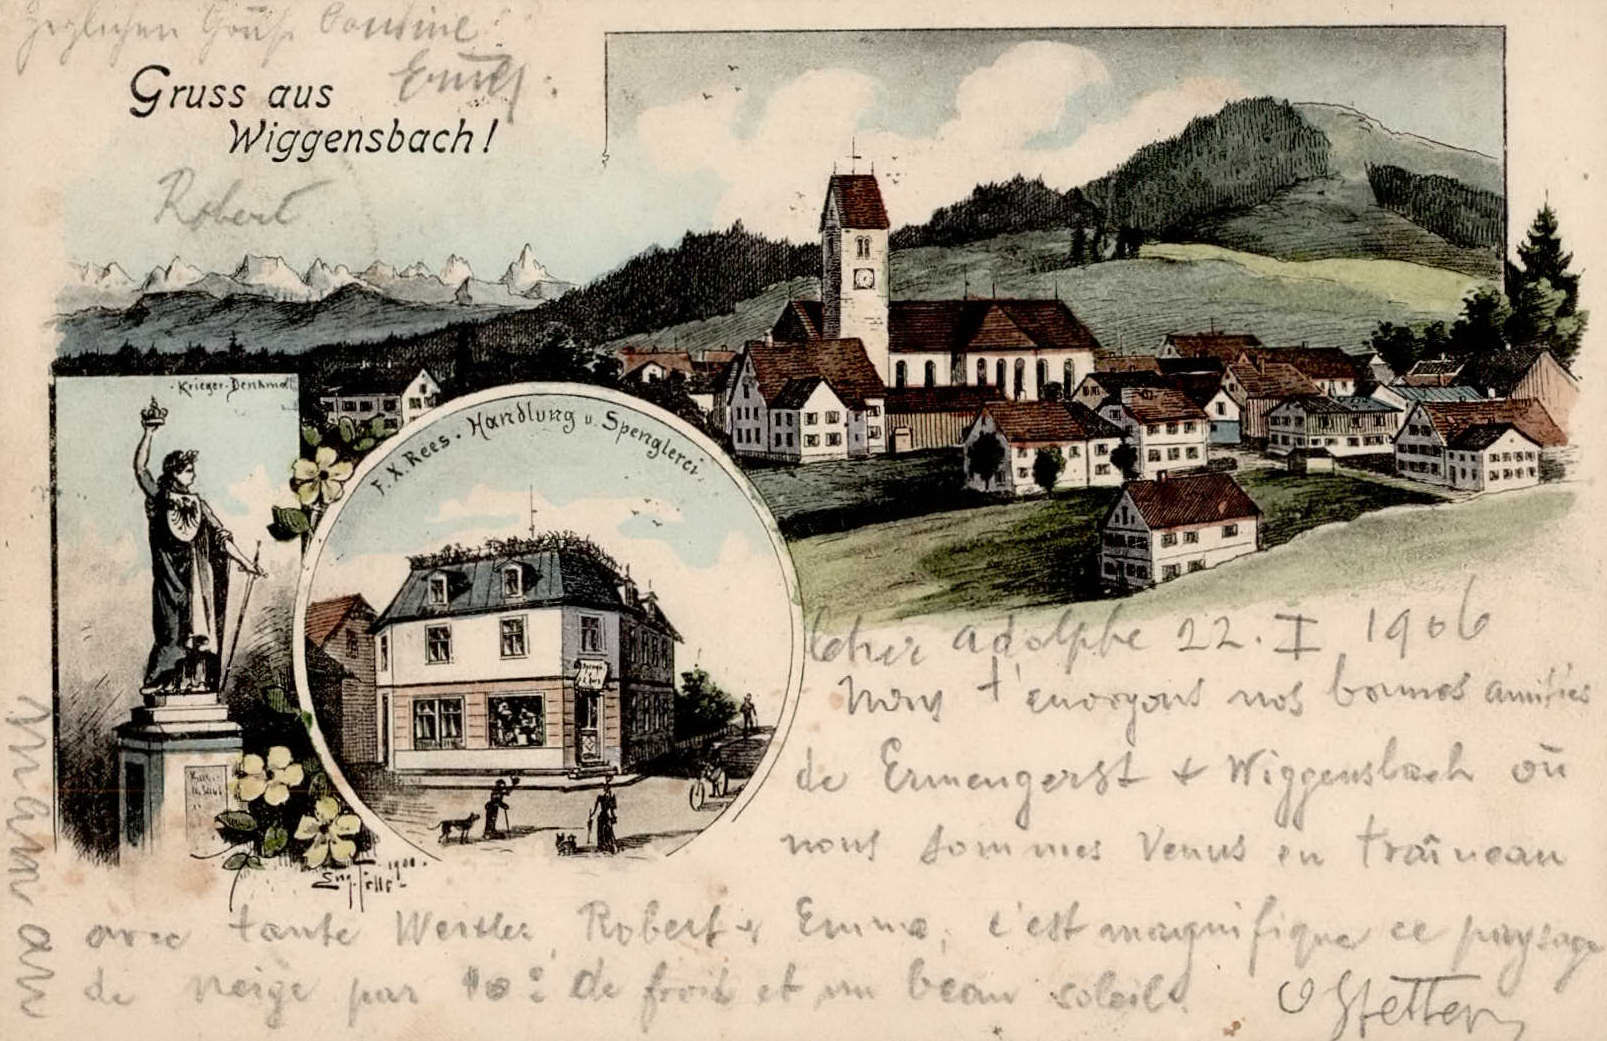 Herzlichen Gruß Cousine
Emily.
Gruss aus
Wiggensbach!
Robert
Krieger-Denkmal
F. X. Rees. Handlung u. Spenglerei.
1900.
Maman
cher Adolphe 22. I 1906
Nous t'envoyons nos bonnes amitiés
de Ermengerst + Wiggensbach où
nous sommes venus en traîneau
avec tante Robert + Emma, c'est magnifique ce paysage
de neige par 10° de froid et un beau soleil.
Stetter